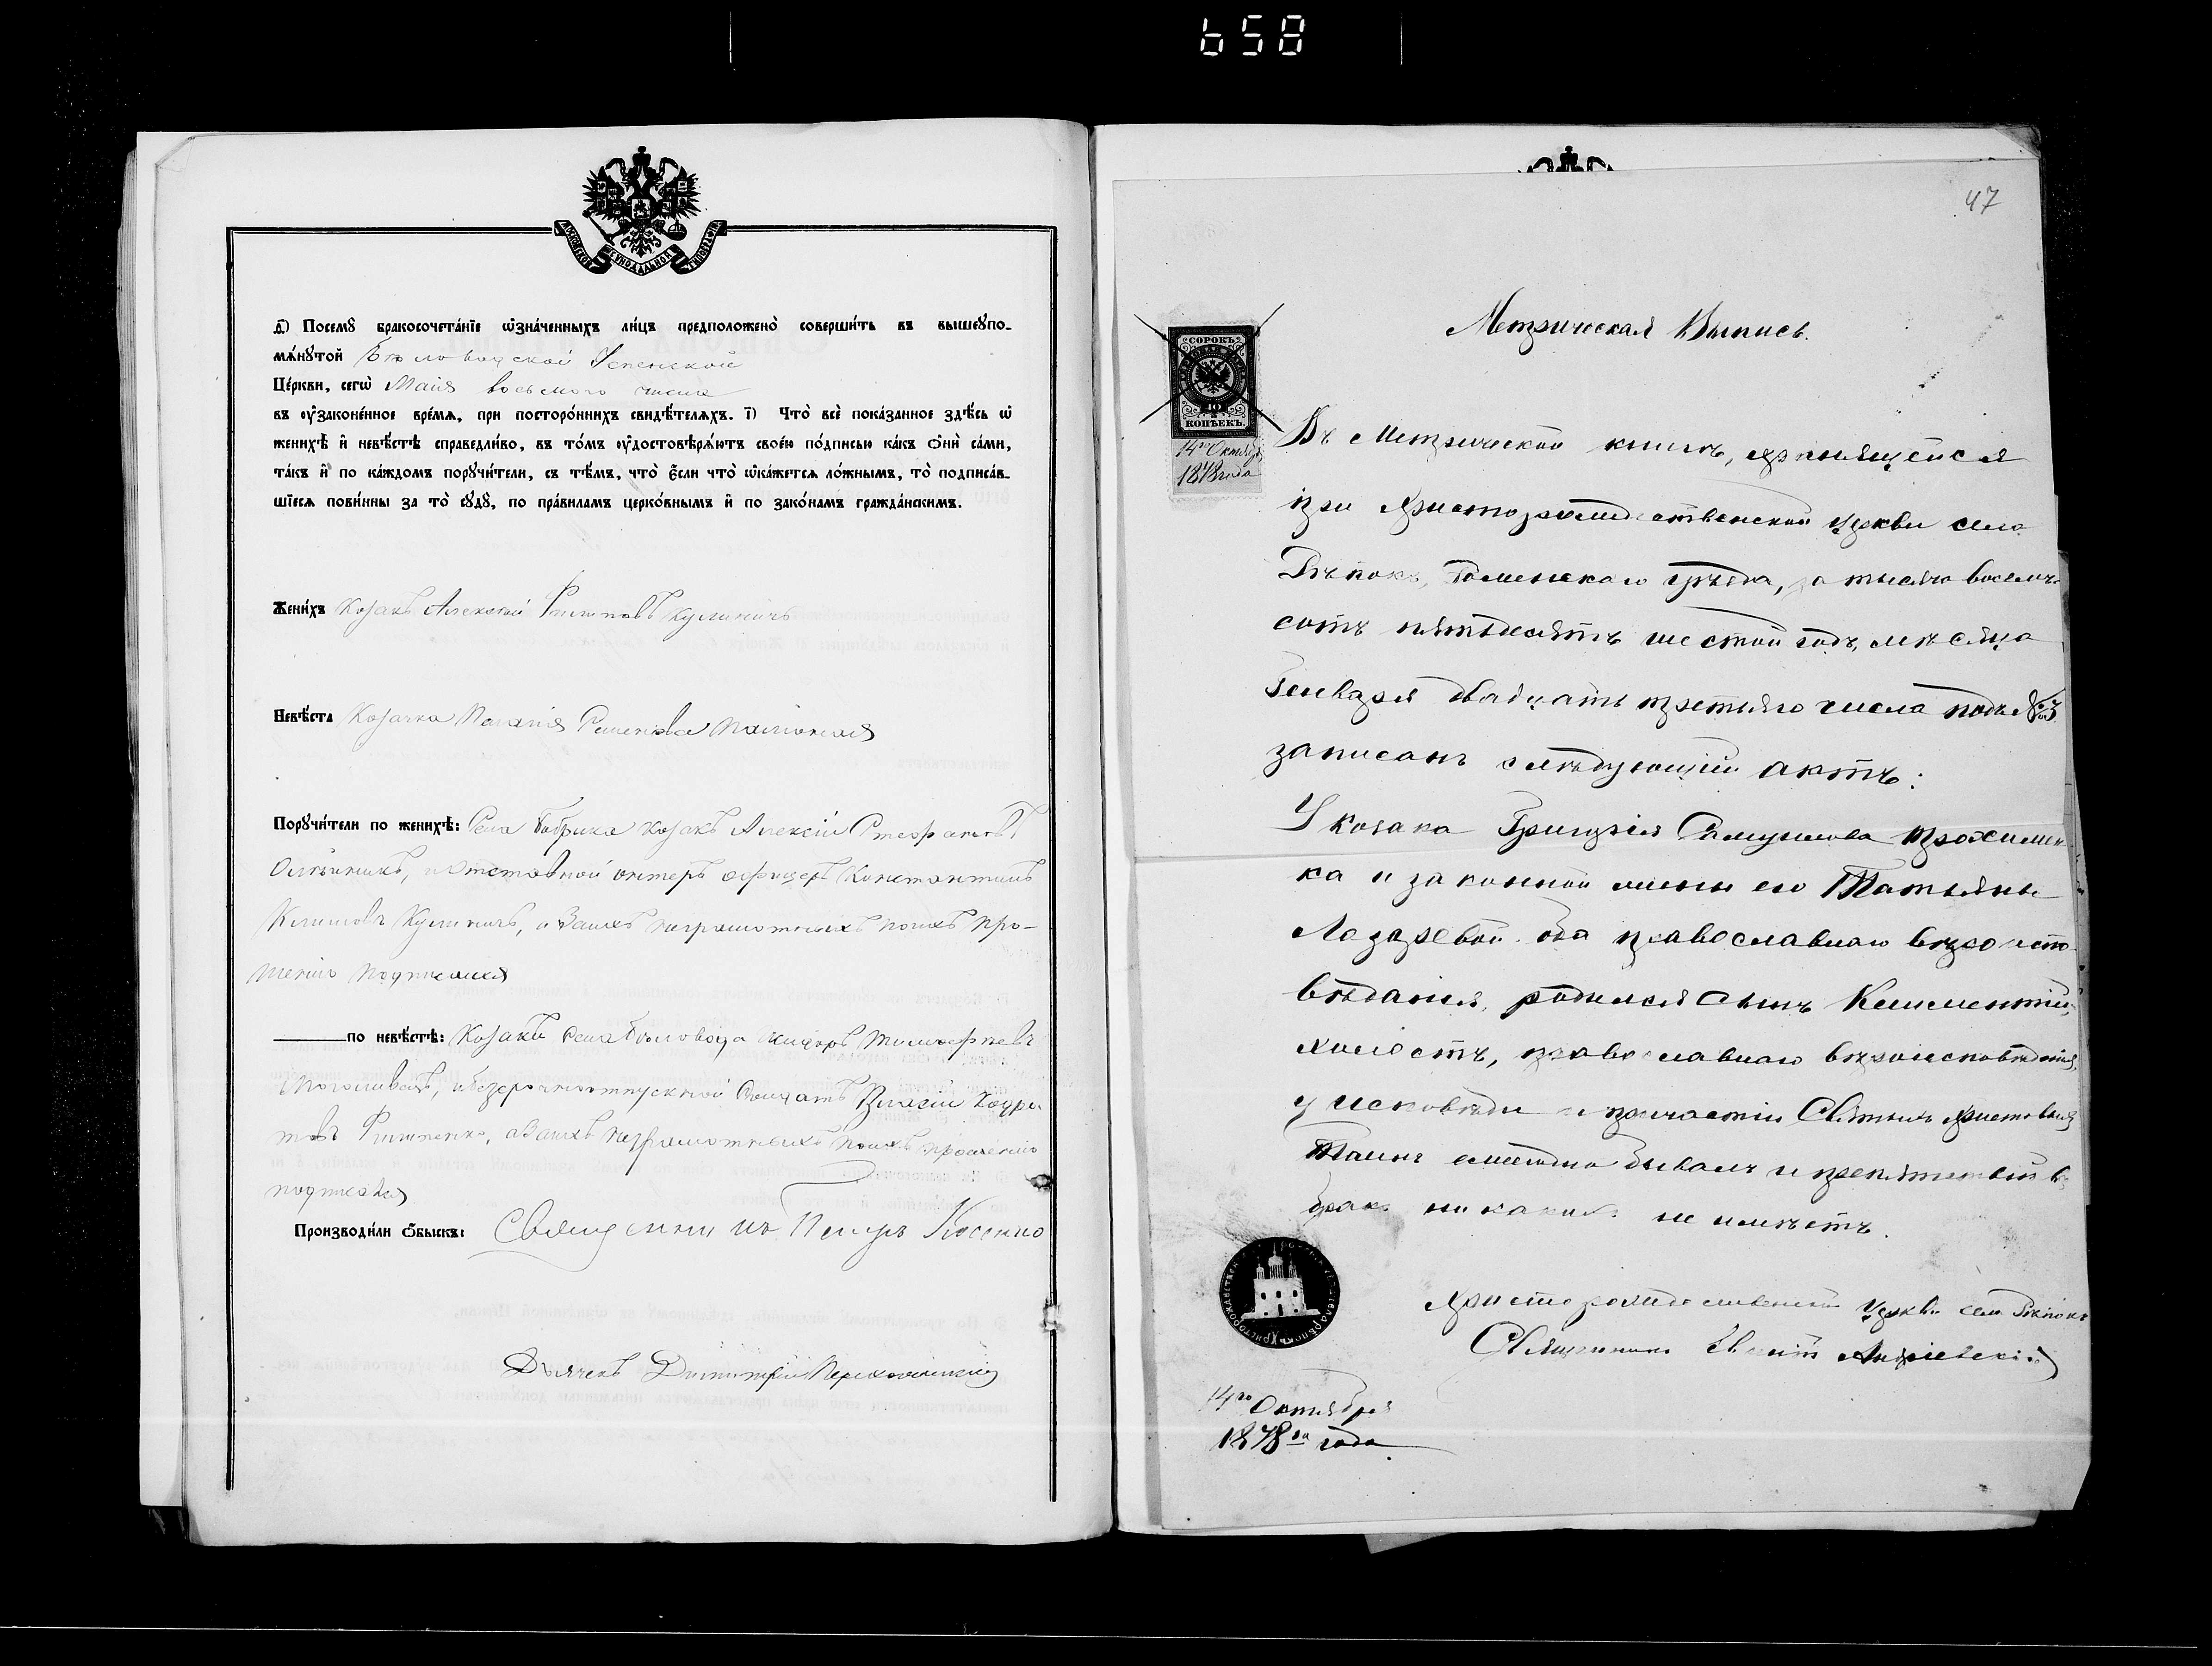 658
МОСКОВСКОЙ СУНОДАЛЬНОЙ ТИПОГРАФІИ
д҃) Посемꙋ бракосочета́нїе ѡ҆зна́ченныхъ ли́цъ предположено̀ соверши́ть въ вышеꙋпо-
мѧ́нꙋтой Бѣловодской Успенской
Це́ркви, сегѡ̀ Маія восьмого числа
въ ᲂу҆законе́нное вре́мѧ, при посторо́ннихъ свидѣ́телѧхъ. і҃) Что̀ всѐ пока́занное здѣ́сь ѡ҆
женихѣ̀ и҆ невѣ́стѣ справедли́во, въ то́мъ ᲂу҆достовѣрѧ́ютъ свое́ю по́дписью ка́къ ѻ҆нѝ са́ми,
та́къ и҆ по ка́ждомъ порꙋчи́тели, съ тѣ́мъ, что̀ є҆́сли что̀ ѡ҆ка́жетсѧ ло́жнымъ, то̀ подписа́в-
шїесѧ пови́нны за то̀ сꙋдꙋ̀, по пра́виламъ церко́внымъ и҆ по зако́намъ гражда́нскимъ.
Жени́хъ Козакъ Алексѣй Филиповъ Кулиничъ
Невѣ́ста Козачка Пелагія Семенова
Порꙋчи́тели по женихѣ̀: Села Бобрика козакъ Алексій Стефановъ
Олѣйникъ, и отставной унтеръ офицеръ Константинъ
Климовъ Кулиничъ, а заихъ неграмотныхъ поихъ про-
шенію подписался
по невѣ́стѣ: Козаки села Бѣловода Тимофѣевъ
и безсрочноотпускной Солдатъ Власій Кодра
товъ Филипенко, а заихъ неграмотныхъ поихъ прошенію
подписался
Производи́ли ѻ҆́быскъ: Священникъ Петръ Косенко
Дьячекъ Димитрій
47
Метрическая Выпись.
СОРОКЪ
40
КОПѢЕКЪ.
14го Октября
1878 года
Въ Метрической книгѣ, хранящейся
при Христорождественской церкви села
Рѣпокъ, Роменскаго уѣзда, за тысяча восемь
сотъ пятьдесятъ шестой годъ, мѣсяца
Генваря двадцать третьяго числа подъ № 3
записанъ слѣдующій актъ:
У козака Григорія Самуилова Трохимен-
ка и законной жены его Татьяны
Лазаревой оба православнаго вѣроиспо-
вѣданія, родился сынъ Климентій,
холостъ, православнаго вѣроисповѣданія,
у исповѣди и причастія Святыхъ Христовыхъ
Таинъ ежегодно бывалъ и препятствій въ
бракъ никакихъ не имѣетъ.
Христорождественской Церкви села Рѣпокъ
Священникъ Андріевскій
14го Октября
1878го года